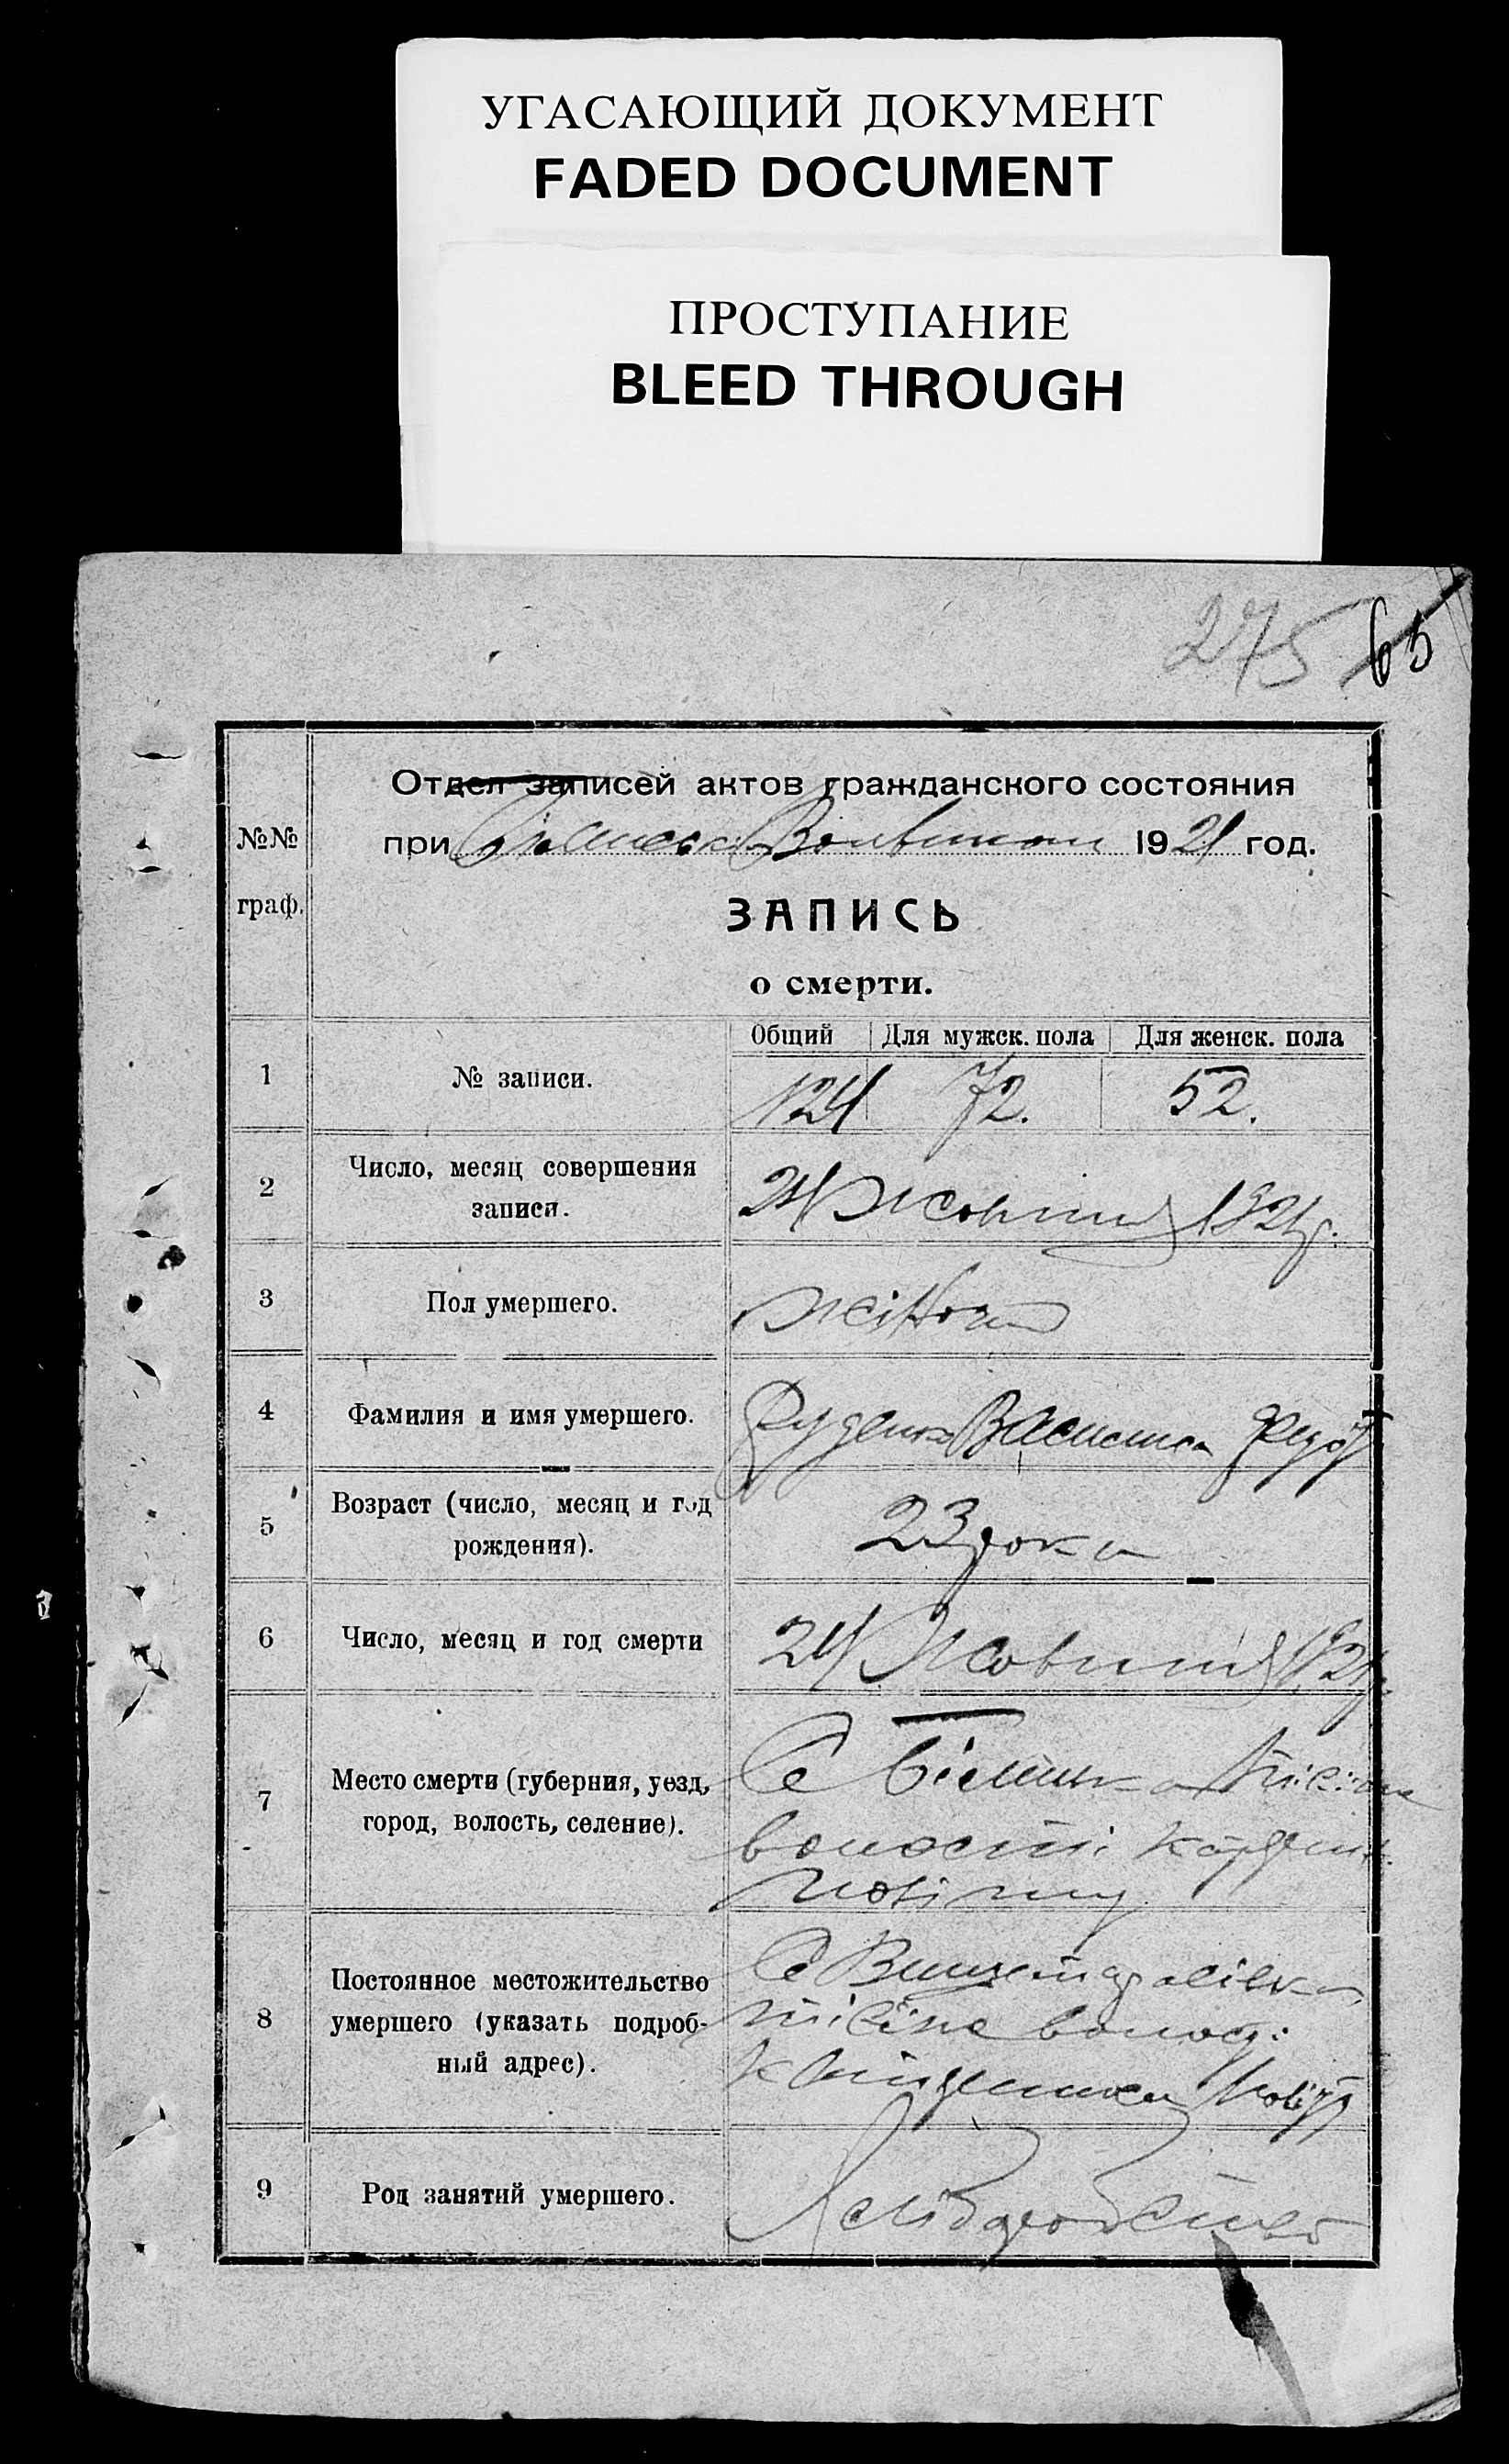 УГАСАЮЩИЙ ДОКУМЕНТ
FADED DOCUMENT
ПРОСТУПАНИЕ
BLEED THROUGH
275 65
Отдел записей актов гражданского состояния
№№ при 1921 год.
граф.
ЗАПИСЬ
о смерти.
Общий Для мужск. пола Для женск. пола
1 № записи. 124 72. 52.
2 Число, месяц совершения
записи. 24 Жовтня 1921 р.
3 Пол умершего. жіноча
4 Фамилия и имя умершего. Руденко Василиса Федор
5 Возраст (число, месяц и год
рождения). 23 рока
6 Число, месяц и год смерти 24 Жовтня 1921 р.
7 Место смерти (губерния, уезд,
город, волость, селение). С
волости
повіту
8 Постоянное местожительство
умершего (указать подроб-
ный адрес). С
волости
повіту
9 Род занятий умершего. Хліборобство